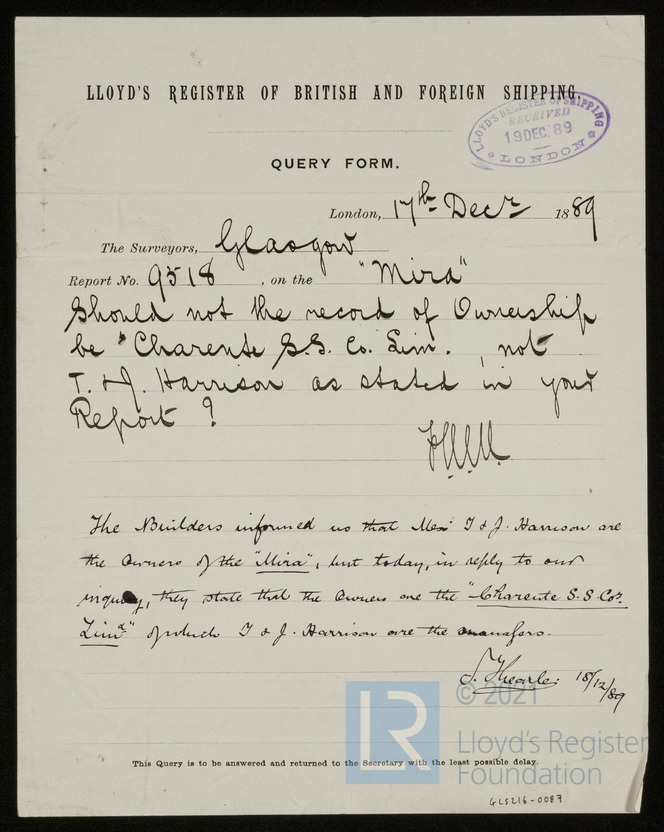 LLOYD'S REGISTER OF BRITISH AND FOREIGN SHIPPING.
LLOYD'S REGISTER OF SHIPPING
RECEIVED
19 DEC. 89
LONDON
QUERY FORM.
London, 17th Decr 1889
The Surveyors, Glasgow
Report No. 9518, on the "Mira"
Should not the record of Ownership
be "Charente S.S. Co. Lim. , not
T. & J. Harrison as stated in your
Report ?
The Builders informed us that Mess T & J. Harrison are
the Owners of the "Mira", but today, in reply to our
inquiry, they state that the Owners are the "Charente S.S. Coy.
Limd" of which T & J. Harrison are the manafers.
18/12/89
© 2021
LR
Lloyd's Register
Foundation
This Query is to be answered and returned to the Secretary with the least possible delay.
GLS216-0087